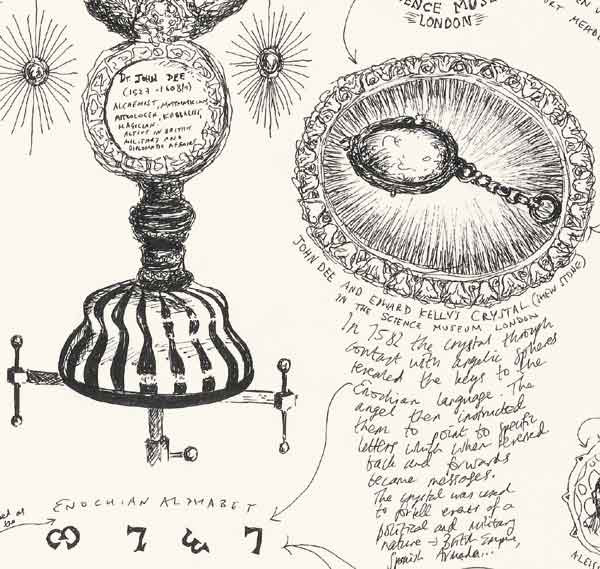 ENCE MUSE
LONDON
Dr. JOHN DEE
(1527 - 1608/9)
ALCHEMIST, MATHMATICIAN
ASTROLOGER, KABBALIST,
MAGICIAN.
ACTIVE IN BRITISH
MILITARY AND
DIPLOMATIC AFFAIRS
JOHN DEE AND EDWARD KELLYS CRYSTAL (SHEW STONE)
IN THE SCIENCE MUSEUM LONDON
In 1582 the crystal through
contact with angelic spheres
revealed the keys to the
Enochian language. The
angel then instructed
them to point to specific
letters which when reversed
back and forwards
became messages.
The crystal was used
to foretell events of a
political and military
nature → British Empire,
Spanish Armada...
ENOCHIAN ALPHABET
ALEIS